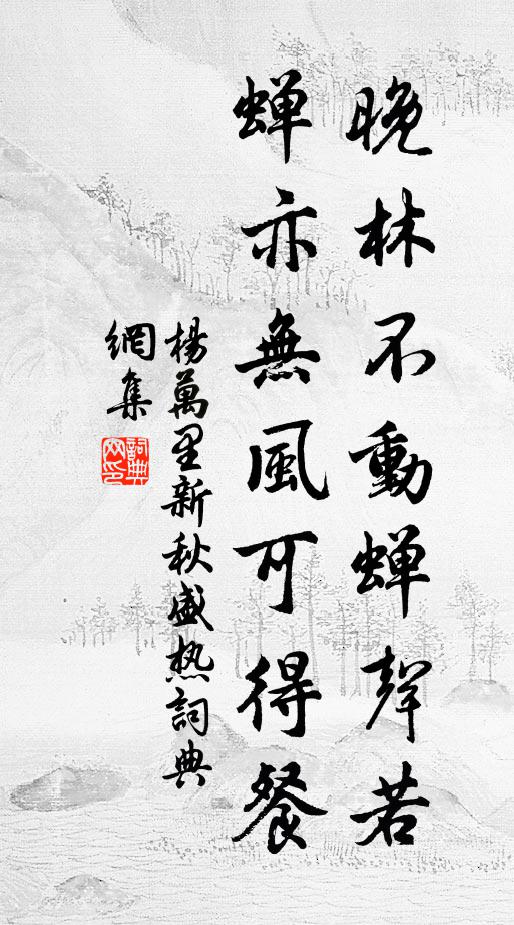 晚林不動蟬聲若
蟬亦無風可得餐
楊萬里新秋盛热詞典
網集
詞典网印